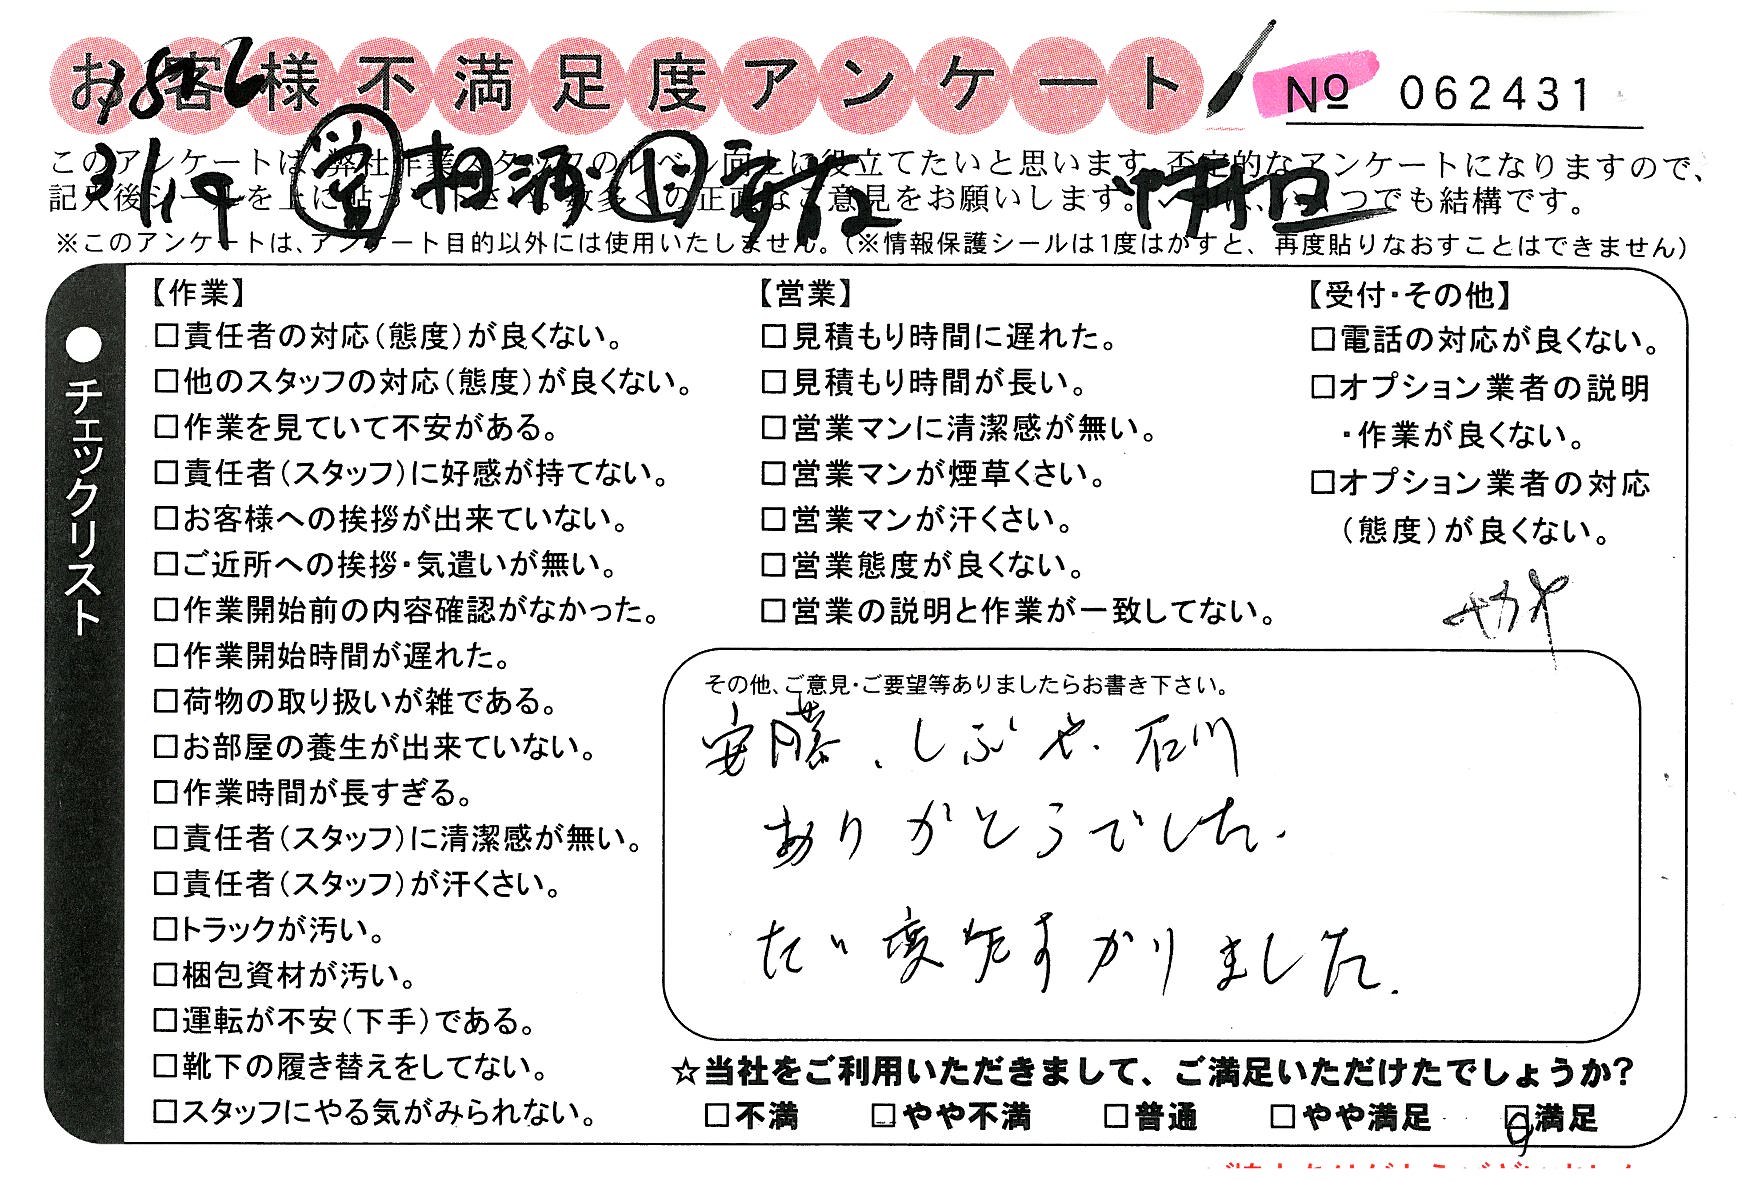 お客様不満足度アンケート
No 062431
1856
3/19 営 相洒 リ 安友
このアンケートは、弊社作業スタッフのレベル向上に役立てたいと思います。否定的なアンケートになりますので、
記入後シールを上に貼って下さい。数多くの正直なご意見をお願いします。 いつでも結構です。
※このアンケートは、アンケート目的以外には使用いたしません。(※情報保護シールは1度はがすと、再度貼りなおすことはできません)
●チェックリスト
【作業】
□責任者の対応(態度)が良くない。
□他のスタッフの対応(態度)が良くない。
□作業を見ていて不安がある。
□責任者(スタッフ)に好感が持てない。
□お客様への挨拶が出来ていない。
□ご近所への挨拶・気遣いが無い。
□作業開始前の内容確認がなかった。
□作業開始時間が遅れた。
□荷物の取り扱いが雑である。
□お部屋の養生が出来ていない。
□作業時間が長すぎる。
□責任者(スタッフ)に清潔感が無い。
□責任者(スタッフ)が汗くさい。
□トラックが汚い。
□梱包資材が汚い。
□運転が不安(下手)である。
□靴下の履き替えをしてない。
□スタッフにやる気がみられない。
【営業】
□見積もり時間に遅れた。
□見積もり時間が長い。
□営業マンに清潔感が無い。
□営業マンが煙草くさい。
□営業マンが汗くさい。
□営業態度が良くない。
□営業の説明と作業が一致してない。
【受付・その他】
□電話の対応が良くない。
□オプション業者の説明
・作業が良くない。
□オプション業者の対応
(態度)が良くない。
その他、ご意見・ご要望等ありましたらお書き下さい。
安藤、しぶや、石川
ありがとうでした。
たい度たすかりました。
☆当社をご利用いただきまして、ご満足いただけたでしょうか?
□不満 □やや不満 □普通 □やや満足 □満足